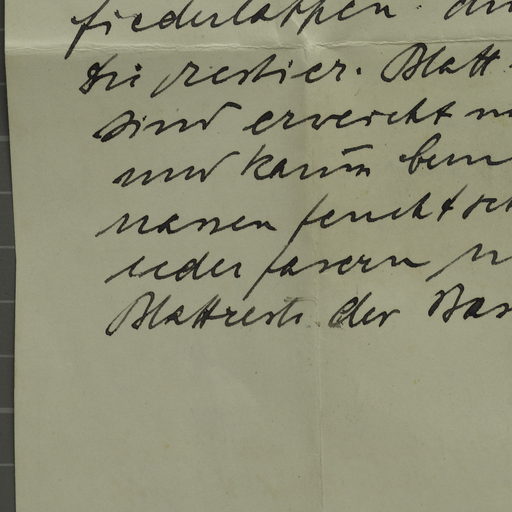 fiederlappen.
Die restier. Blatt
sind erweicht
und kaum
nassen feucht
jeder fasern
Blattreste der Bas